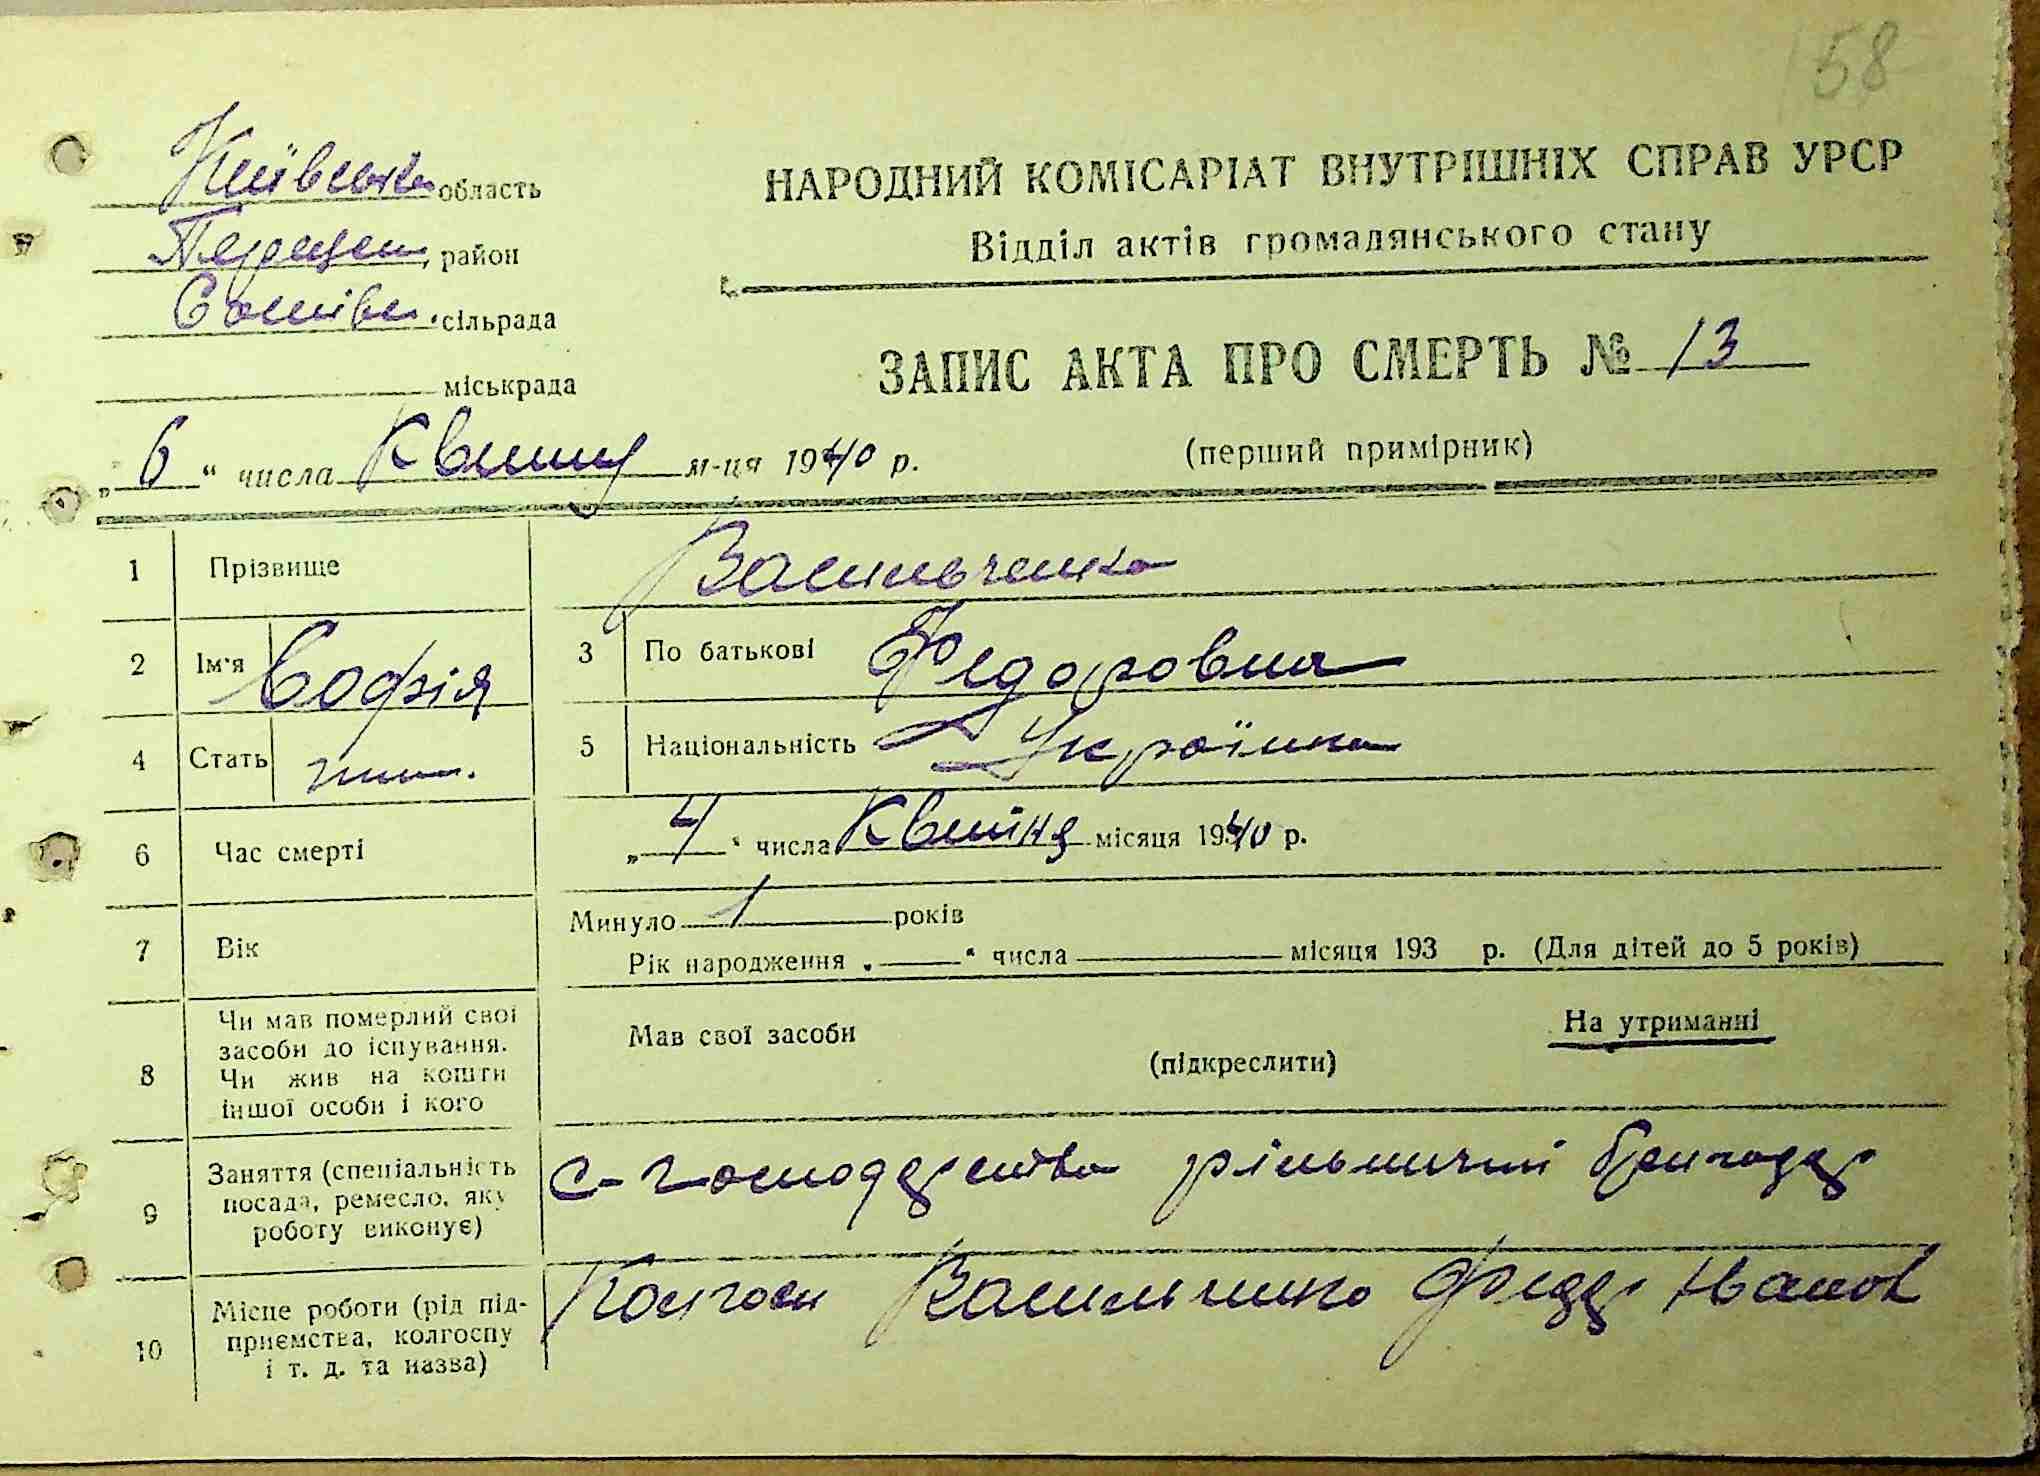 158
Київська область
НАРОДНИЙ КОМІСАРІАТ ВНУТРІШНІХ СПРАВ УРСР
район
Відділ актів громадянського стану
сільрада
міськрада
ЗАПИС АКТА ПРО СМЕРТЬ № 13
„6“ числа Квітня м-ця 1940 р.
(перший примірник)
1 Прізвище Васильченко
2 Ім'я Софія 3 По батькові Федоровна
4 Стать жін. 5 Національність Українка
6 Час смерті „4“ числа Квітня місяця 1940 р.
7 Вік Минуло 1 років
Рік народження „ “ числа місяця 193 р. (Для дітей до 5 років)
8 Чи мав померлий свої
засоби до існування.
Чи жив на кошти
іншої особи і кого
Мав свої засоби На утриманні
(підкреслити)
9 Заняття (спеціальність
посада, ремесло, яку
роботу виконує)
с-господарства рільничій бригаді
10 Місце роботи (рід під-
приємства, колгоспу
і т. д. та назва)
Колгосп Васильченко Федір Іванов